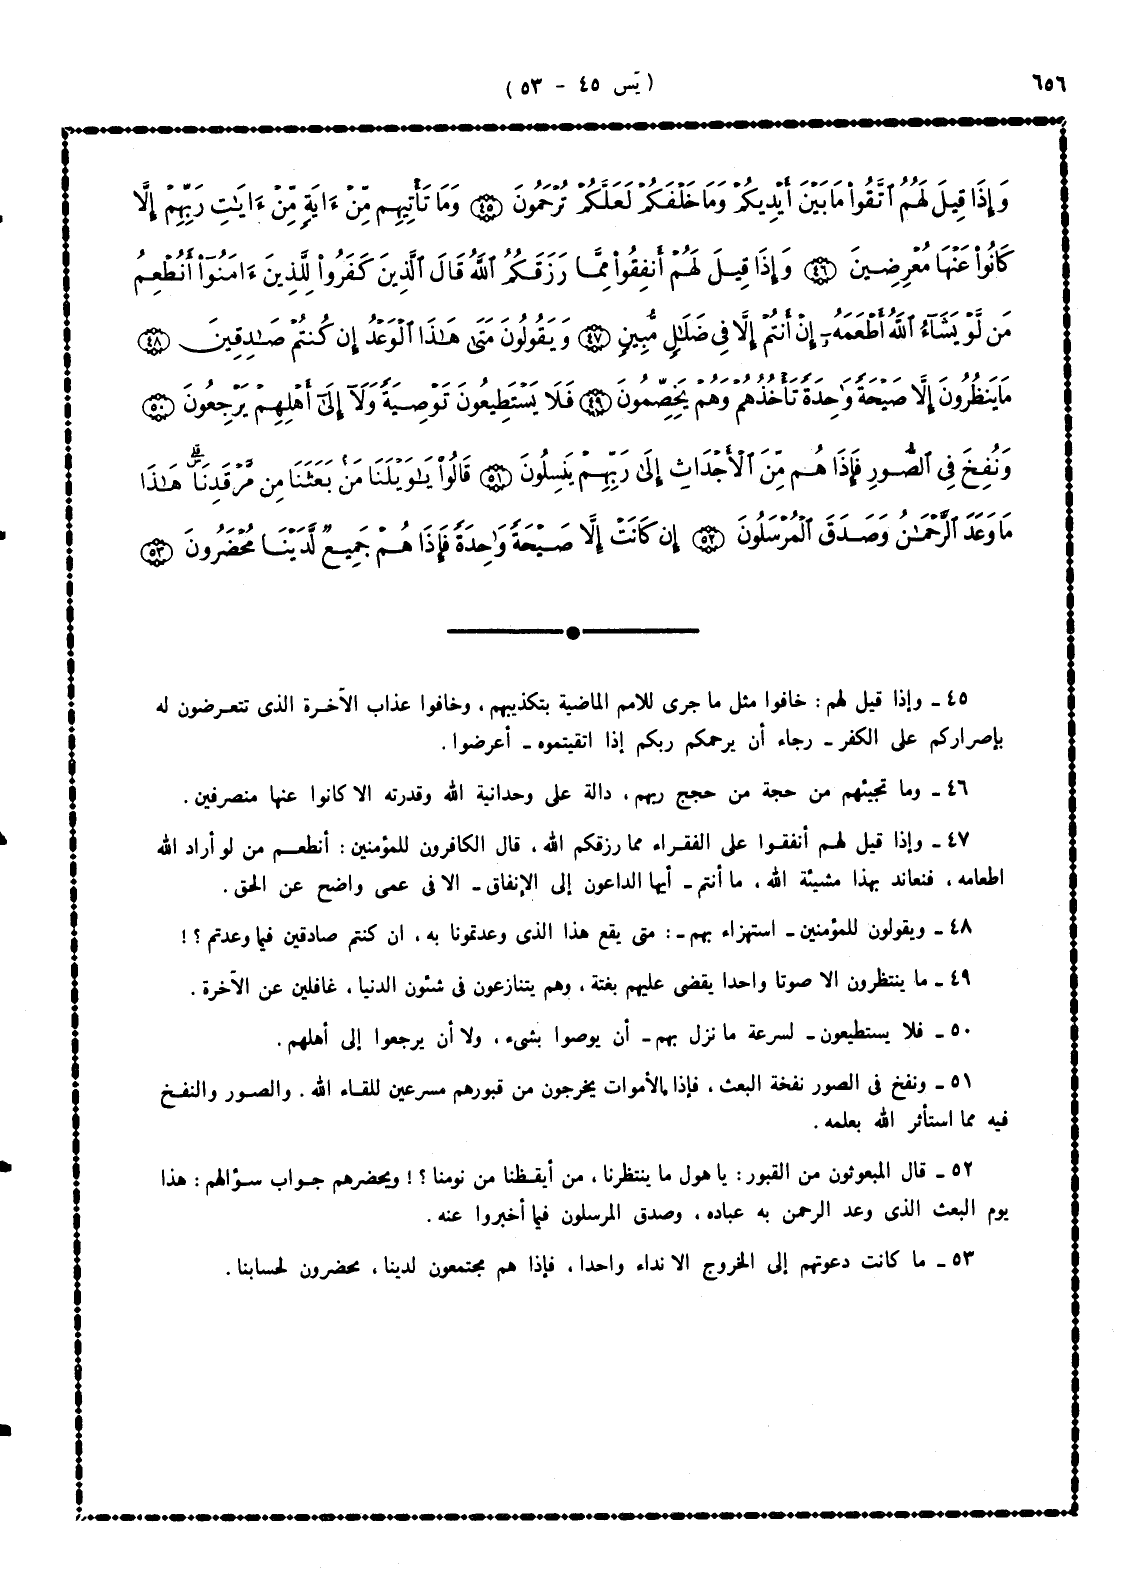 ٦٥٦
( يٓس ٤٥ - ٥٣ )
وَإِذَا قِيلَ لَهُمُ ٱتَّقُوا۟ مَا بَيْنَ أَيْدِيكُمْ وَمَا خَلْفَكُمْ لَعَلَّكُمْ تُرْحَمُونَ ٤٥ وَمَا تَأْتِيهِم مِّنْ ءَايَةٍ مِّنْ ءَايَـٰتِ رَبِّهِمْ إِلَّا
كَانُوا۟ عَنْهَا مُعْرِضِينَ ٤٦ وَإِذَا قِيلَ لَهُمْ أَنفِقُوا۟ مِمَّا رَزَقَكُمُ ٱللَّهُ قَالَ ٱلَّذِينَ كَفَرُوا۟ لِلَّذِينَ ءَامَنُوٓا۟ أَنُطْعِمُ
مَن لَّوْ يَشَآءُ ٱللَّهُ أَطْعَمَهُۥٓ إِنْ أَنتُمْ إِلَّا فِى ضَلَـٰلٍ مُّبِينٍ ٤٧ وَيَقُولُونَ مَتَىٰ هَـٰذَا ٱلْوَعْدُ إِن كُنتُمْ صَـٰدِقِينَ ٤٨
مَا يَنظُرُونَ إِلَّا صَيْحَةً وَٰحِدَةً تَأْخُذُهُمْ وَهُمْ يَخِصِّمُونَ ٤٩ فَلَا يَسْتَطِيعُونَ تَوْصِيَةً وَلَآ إِلَىٰٓ أَهْلِهِمْ يَرْجِعُونَ ٥٠
وَنُفِخَ فِى ٱلصُّورِ فَإِذَا هُم مِّنَ ٱلْأَجْدَاثِ إِلَىٰ رَبِّهِمْ يَنسِلُونَ ٥١ قَالُوا۟ يَـٰوَيْلَنَا مَنۢ بَعَثَنَا مِن مَّرْقَدِنَا ۜ ۗ هَـٰذَا
مَا وَعَدَ ٱلرَّحْمَـٰنُ وَصَدَقَ ٱلْمُرْسَلُونَ ٥٢ إِن كَانَتْ إِلَّا صَيْحَةً وَٰحِدَةً فَإِذَا هُمْ جَمِيعٌ لَّدَيْنَا مُحْضَرُونَ ٥٣
٤٥ ـ وإذا قيل لهم : خافوا مثل ما جرى للامم الماضية بتكذيبهم ، وخافوا عذاب الآخرة الذى تتعرضون له
بإصراركم على الكفر ـ رجاء أن يرحمكم ربكم إذا اتقيتموه ـ أعرضوا .
٤٦ ـ وما تجيئهم من حجة من حجج ربهم ، دالة على وحدانية الله وقدرته الا كانوا عنها منصرفين .
٤٧ ـ وإذا قيل لهم أنفقوا على الفقراء مما رزقكم الله ، قال الكافرون للمؤمنين : أنطعم من لو أراد الله
اطعامه ، فنعاند بهذا مشيئة الله ، ما أنتم ـ أيها الداعون إلى الإنفاق ـ الا فى عمى واضح عن الحق .
٤٨ ـ ويقولون للمؤمنين ـ استهزاء بهم ـ : متى يقع هذا الذى وعدتمونا به ، ان كنتم صادقين فيما وعدتم ؟ !
٤٩ ـ ما ينتظرون الا صوتا واحدا يقضى عليهم بغتة ، وهم يتنازعون فى شئون الدنيا ، غافلين عن الآخرة .
٥٠ ـ فلا يستطيعون ـ لسرعة ما نزل بهم ـ أن يوصوا بشىء ، ولا أن يرجعوا إلى أهلهم .
٥١ ـ ونفخ فى الصور نفخة البعث ، فإذا بالأموات يخرجون من قبورهم مسرعين للقاء الله . والصور والنفخ
فيه مما استأثر الله بعلمه .
٥٢ ـ قال المبعوثون من القبور : يا هول ما ينتظرنا ، من أيقظنا من نومنا ؟ ! ويحضرهم جواب سؤالهم : هذا
يوم البعث الذى وعد الرحمن به عباده ، وصدق المرسلون فيما أخبروا عنه .
٥٣ ـ ما كانت دعوتهم إلى الخروج الا نداء واحدا ، فإذا هم مجتمعون لدينا ، محضرون لحسابنا .